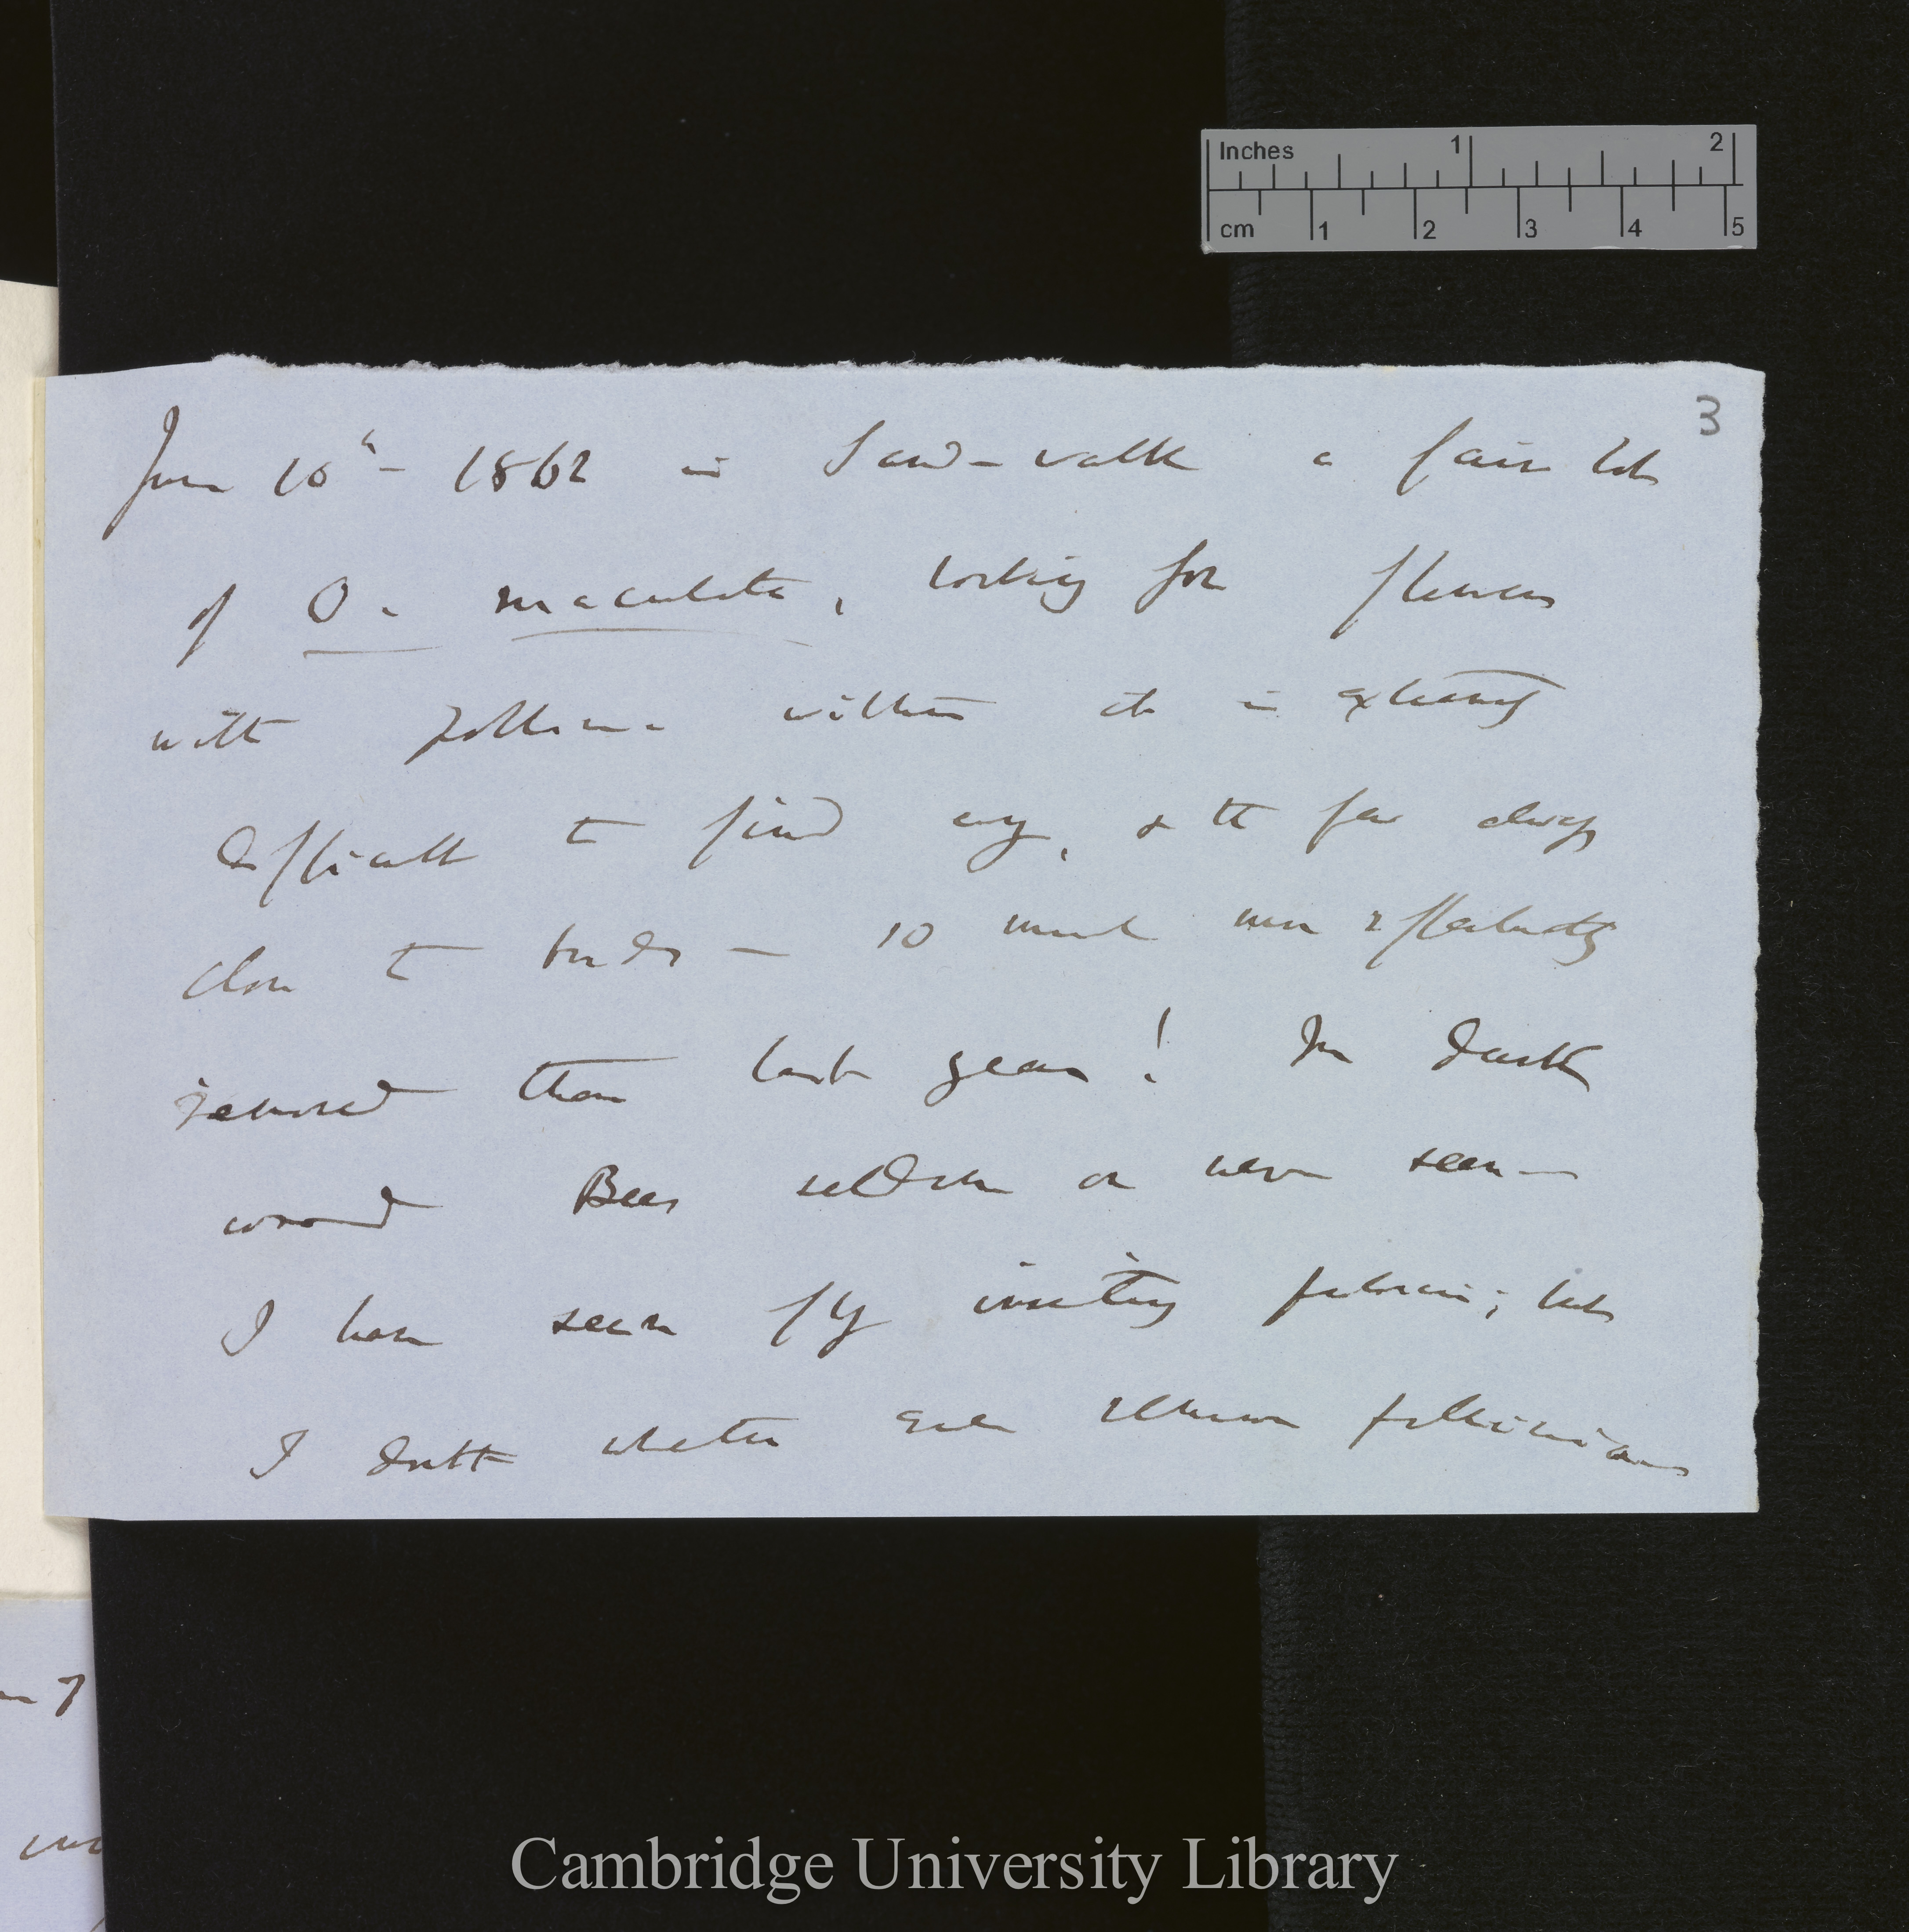 Inches 1 2
cm 1 2 3 4 5
3
June 10th – 1862 in Sand-walk a fair lot
of O. maculata, looking for flowers
with pollinia within it is extremely
difficult to find any, & the few always
close to buds — so much more effectually
removed than last year! In dark
wood Bees seldom or never seen —
I have seen fly visiting ; but
I doubt whether ever remove pollinia
Cambridge University Library